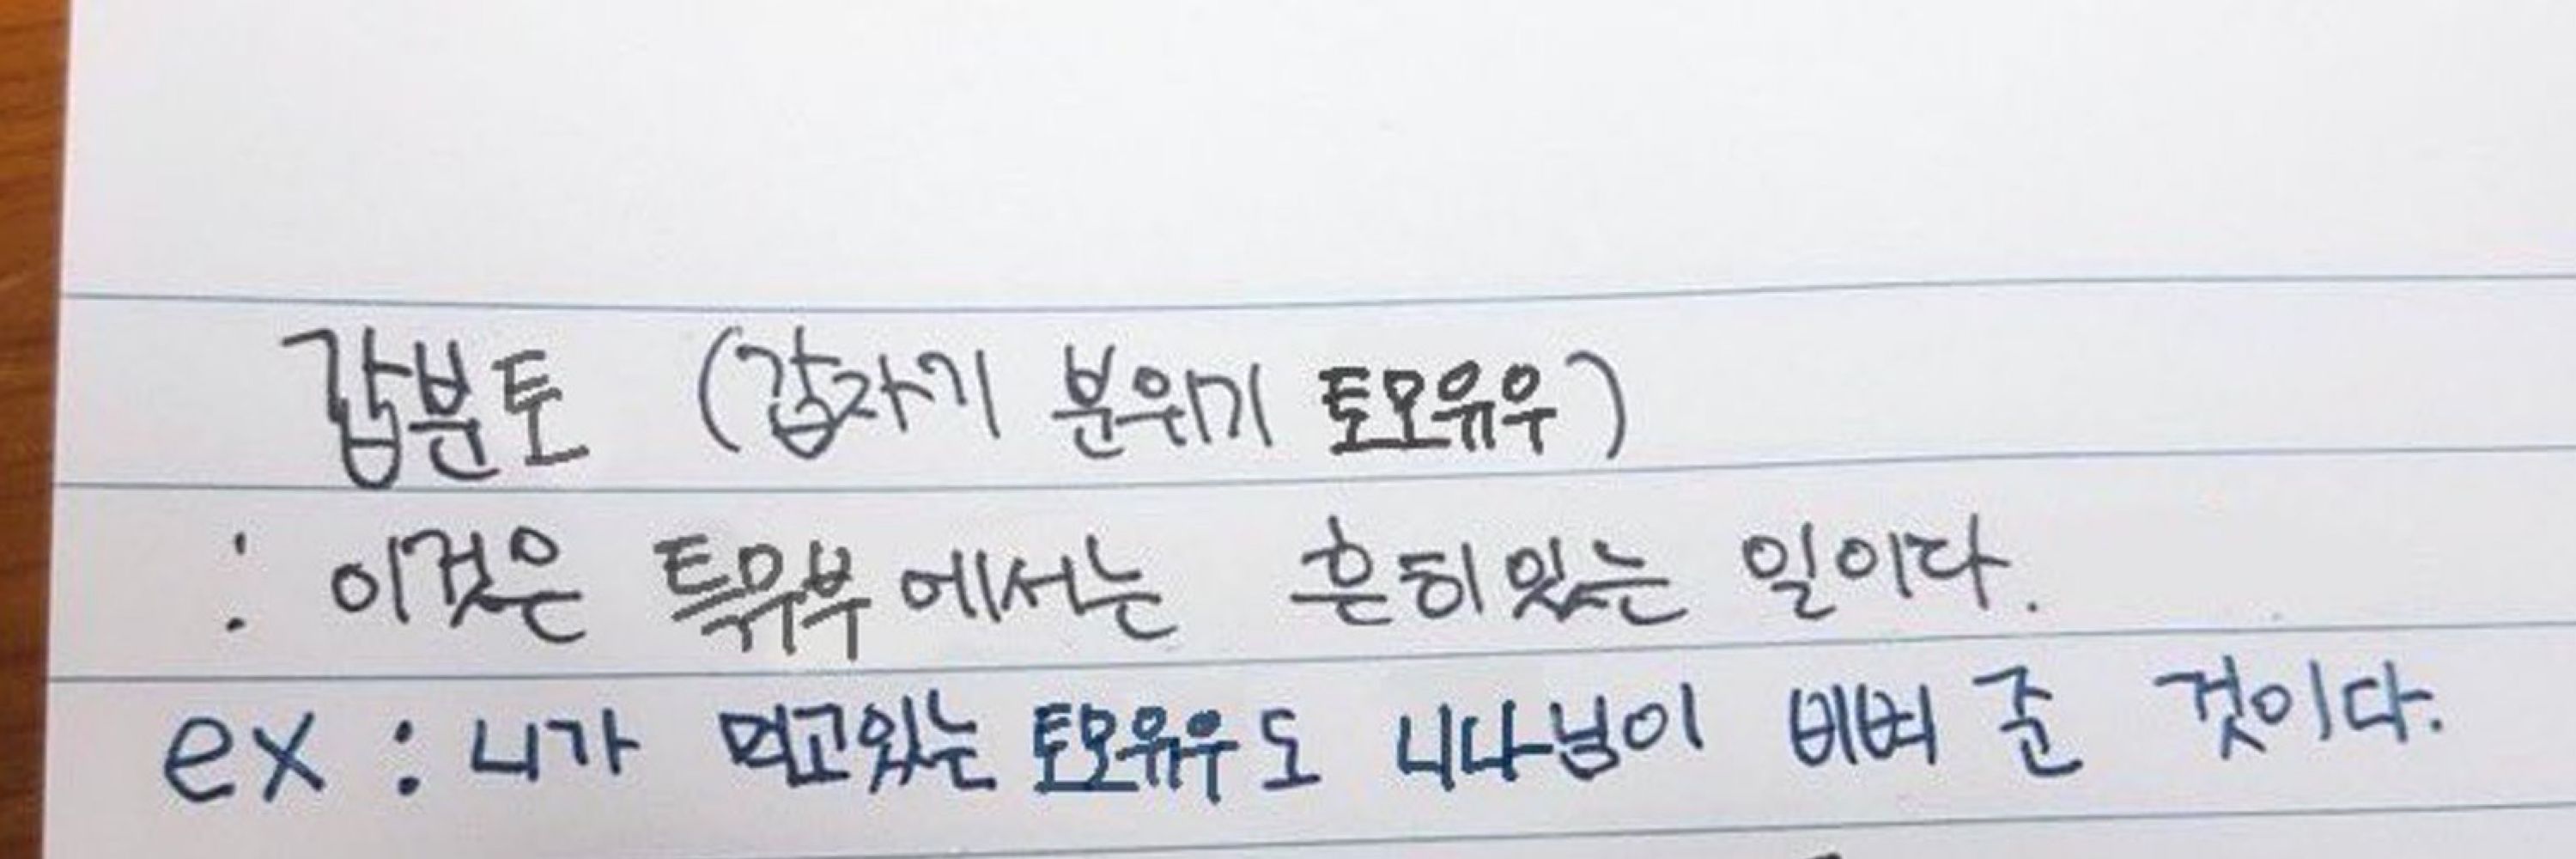 갑분토 (갑자기 분위기 토모유우)
: 이것은 특유부에서는 흔히있는 일이다.
ex : 니가 먹고있는 토모유우도 니다님이 비벼 준 것이다.